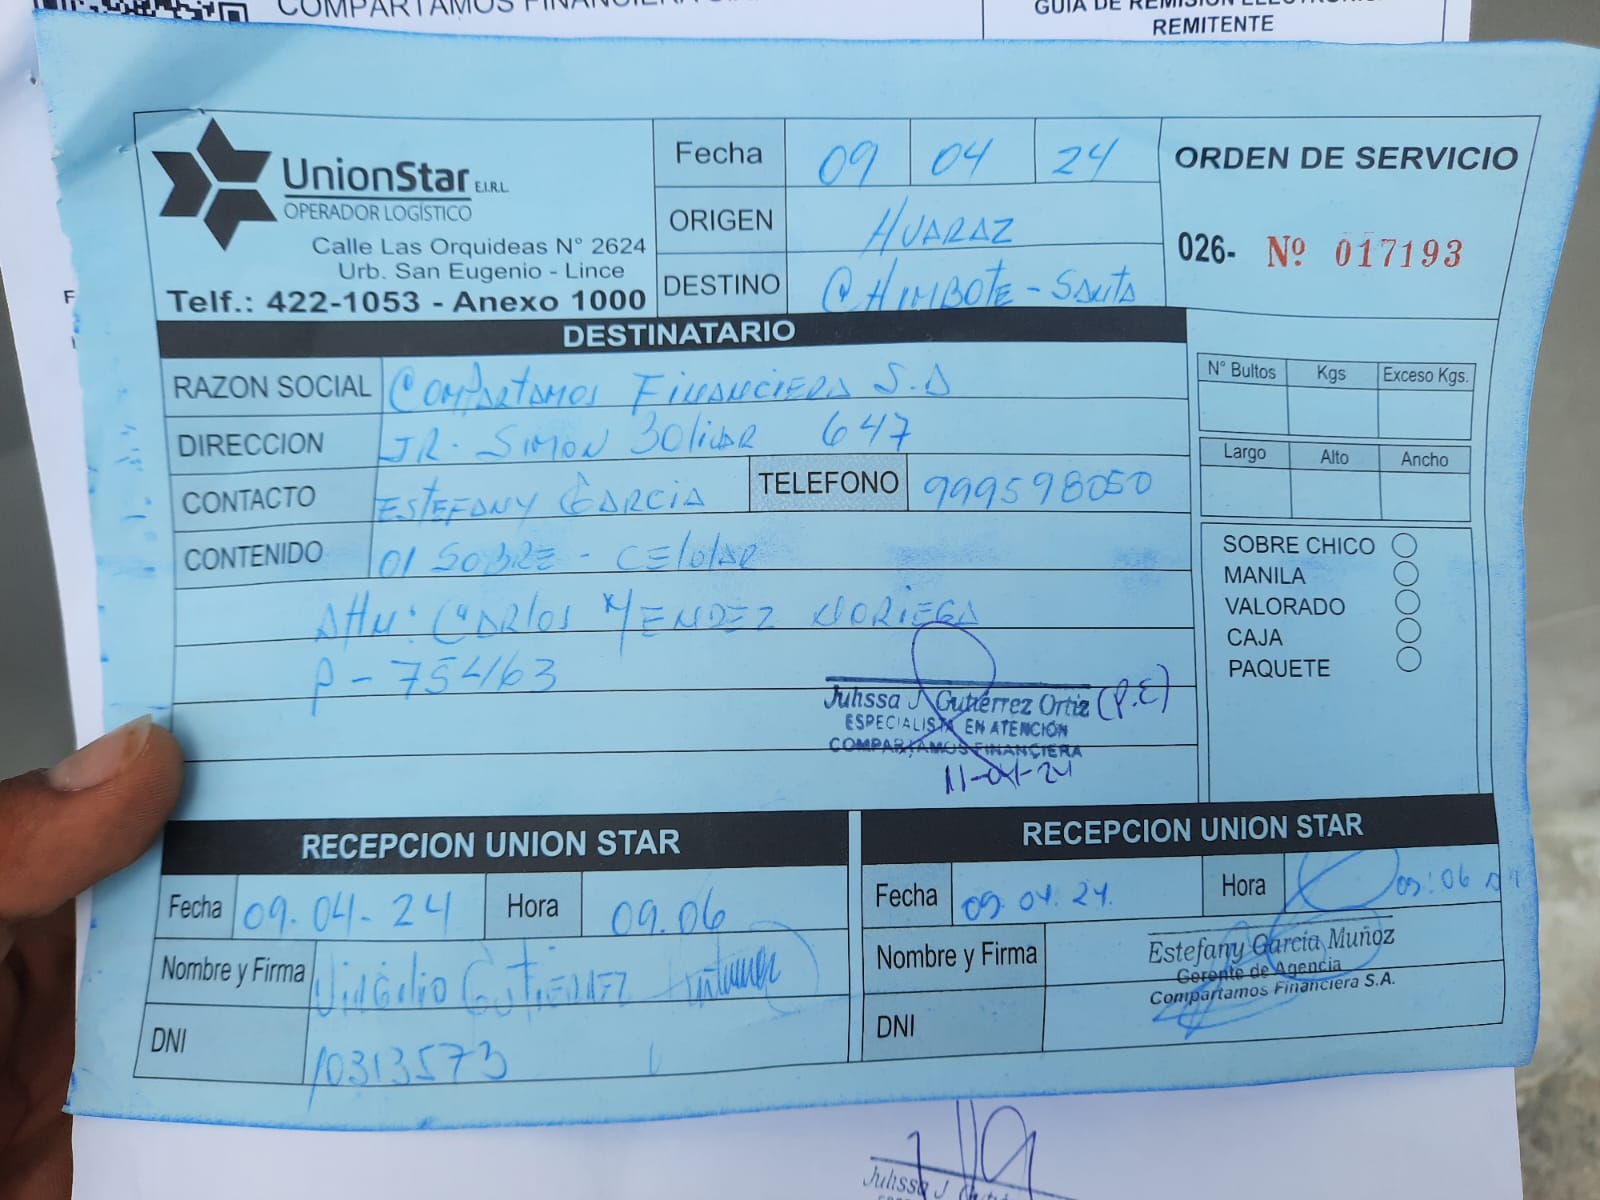 COMPARTAMOS FINANCIERA
GUIA DE REMISION
REMITENTE
UnionStar E.I.R.L.
OPERADOR LOGÍSTICO
Calle Las Orquideas N° 2624
Urb. San Eugenio - Lince
Telf.: 422-1053 - Anexo 1000
Fecha 09 04 24
ORIGEN HUARAZ
DESTINO CHIMBOTE - SANTA
ORDEN DE SERVICIO
026- Nº 017193
DESTINATARIO
RAZON SOCIAL COMPARTAMOS FINANCIERA S.A
DIRECCION JR. SIMON BOLIVAR 647
CONTACTO ESTEFANY GARCIA TELEFONO 999598050
CONTENIDO 01 SOBRE - CELULAR
Attn: CARLOS MENDEZ NORIEGA
P - 754163
Julissa J Gutiérrez Ortiz (P.E)
ESPECIALISTA EN ATENCIÓN
COMPARTAMOS FINANCIERA
11-04-24
N° Bultos Kgs Exceso Kgs.
Largo Alto Ancho
SOBRE CHICO
MANILA
VALORADO
CAJA
PAQUETE
RECEPCION UNION STAR
Fecha 09.04-24 Hora 09.06
Nombre y Firma Virgilio GUTIERREZ
DNI 10313573
RECEPCION UNION STAR
Fecha 09.04.24. Hora 09:06
Nombre y Firma Estefany Garcia Muñoz
Gerente de Agencia
Compartamos Financiera S.A.
DNI
Julissa J